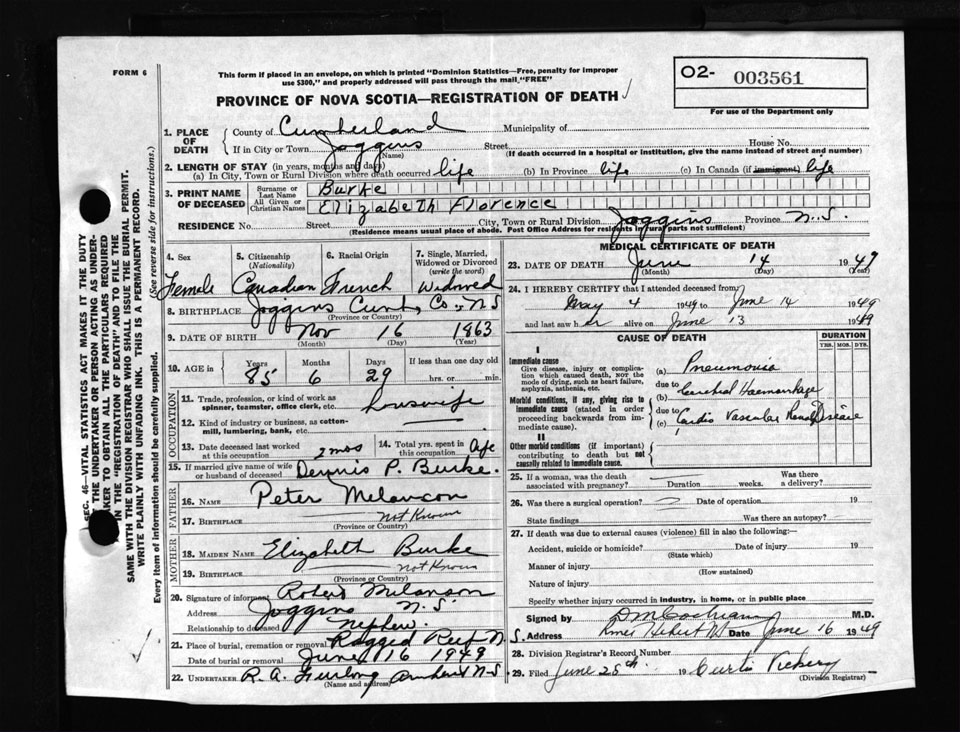 FORM 6
This form if placed in an envelope, on which is printed "Dominion Statistics—Free, penalty for improper
use $300," and properly addressed will pass through the mail, "FREE"
PROVINCE OF NOVA SCOTIA—REGISTRATION OF DEATH
O2- 003561
For use of the Department only
SEC. 46—VITAL STATISTICS ACT MAKES IT THE DUTY
THE UNDERTAKER OR PERSON ACTING AS UNDER-
TAKER TO OBTAIN ALL THE PARTICULARS REQUIRED
IN THE "REGISTRATION OF DEATH" AND TO FILE THE
SAME WITH THE DIVISION REGISTRAR WHO SHALL ISSUE THE BURIAL PERMIT.
WRITE PLAINLY WITH UNFADING INK. THIS IS A PERMANENT RECORD.
Every item of information should be carefully supplied. (See reverse side for instructions.)
1. PLACE OF DEATH
County of Cumberland Municipality of
If in City or Town Joggins Street House No.
(Name) (If death occurred in a hospital or institution, give the name instead of street and number)
2. LENGTH OF STAY (in years, months and days)
(a) In City, Town or Rural Division where death occurred life (b) In Province life (c) In Canada (if immigrant) life
3. PRINT NAME OF DECEASED
Surname or Last Name Burke
All Given or Christian Names Elizabeth Florence
RESIDENCE No. Street City, Town or Rural Division Joggins Province N.S.
(Residence means usual place of abode. Post Office Address for residents in rural parts not sufficient)
4. Sex Female
5. Citizenship (Nationality) Canadian
6. Racial Origin French
7. Single, Married, Widowed or Divorced (write the word) Widowed
8. BIRTHPLACE Joggins Cumb Co., N S
(Province or Country)
9. DATE OF BIRTH Nov 16 1863
(Month) (Day) (Year)
10. AGE in Years 85 Months 6 Days 29 If less than one day old hrs. or min.
OCCUPATION
11. Trade, profession, or kind of work as spinner, teamster, office clerk, etc. housewife
12. Kind of industry or business, as cotton-mill, lumbering, bank, etc.
13. Date deceased last worked at this occupation 2 mos
14. Total yrs. spent in this occupation
15. If married give name of wife or husband of deceased Dennis P. Burke.
FATHER
16. NAME Peter Melancon
17. BIRTHPLACE not Known
(Province or Country)
MOTHER
18. MAIDEN NAME Elizabeth Burke
19. BIRTHPLACE not Known
(Province or Country)
20. Signature of informant Robert Melanson
Address Joggins N.S.
Relationship to deceased Nephew.
21. Place of burial, cremation or removal Ragged Reef N.S.
Date of burial or removal June 16 1949
22. UNDERTAKER R. A. Furlong Amherst N-S
(Name and address)
MEDICAL CERTIFICATE OF DEATH
23. DATE OF DEATH June 14 1949
(Month) (Day) (Year)
24. I HEREBY CERTIFY that I attended deceased from:
May 4 1949 to June 14 1949
and last saw her alive on June 13 1949
CAUSE OF DEATH DURATION
YRS. MOS. DYS.
I
Immediate cause
Give disease, injury or complication which caused death, NOT the mode of dying, such as heart failure, asphyxia, asthenia, etc.
(a) Pneumonia
due to
(b) Cerebral Haemorrhage
Morbid conditions, if any, giving rise to immediate cause (stated in order proceeding backwards from immediate cause).
due to
(c) Cardio Vascular Renal Disease
II
Other morbid conditions (if important) contributing to death but not causally related to immediate cause.
25. If a woman, was the death associated with pregnancy? Duration weeks. Was there a delivery?
26. Was there a surgical operation? Date of operation 19
State findings Was there an autopsy?
27. If death was due to external causes (violence) fill in also the following:
Accident, suicide or homicide? Date of injury 19
(State which)
Manner of injury
(How sustained)
Nature of injury
Specify whether injury occurred in industry, in home, or in public place
Signed by M.D.
Address Date June 16 1949
28. Division Registrar's Record Number
29. Filed June 25th 19 Curtis Vickery
(Division Registrar)